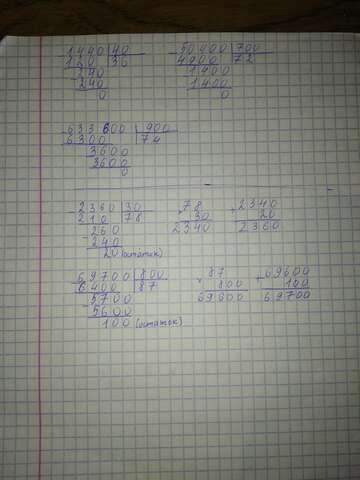 1440 | 40
120 | 36
240
240
0
50400 | 700
4900 | 72
1400
1400
0
633600 | 900
6300 | 74
3600
3600
0
2360 | 30
210 | 78
260
240
20 (остаток)
78
30
2340
2340
20
2360
69700 | 800
6400 | 87
5700
5600
100 (остаток)
87
800
69600
69600
100
69700